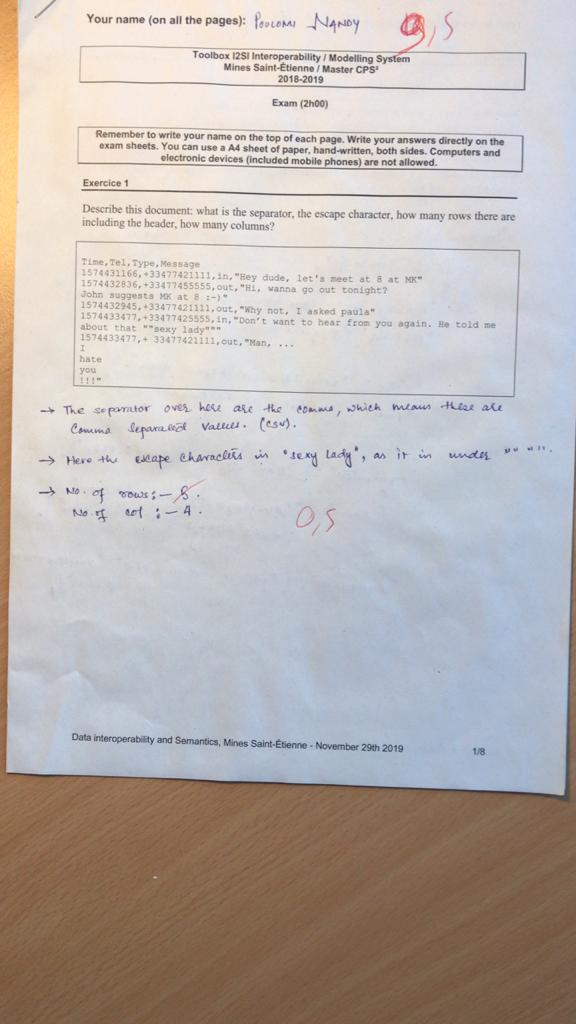 Your name (on all the pages): POULOMI NANDY
9,5
Toolbox I2SI Interoperability / Modelling System
Mines Saint-Étienne / Master CPS²
2018-2019
Exam (2h00)
Remember to write your name on the top of each page. Write your answers directly on the
exam sheets. You can use a A4 sheet of paper, hand-written, both sides. Computers and
electronic devices (included mobile phones) are not allowed.
Exercice 1
Describe this document: what is the separator, the escape character, how many rows there are
including the header, how many columns?
Time,Tel,Type,Message
1574431166,+33477421111,in,"Hey dude, let's meet at 8 at MK"
1574432836,+33477455555,out,"Hi, wanna go out tonight?
John suggests MK at 8 :-)"
1574432945,+33477421111,out,"Why not, I asked paula"
1574433477,+33477425555,in,"Don't want to hear from you again. He told me
about that ""sexy lady"""
1574433477,+ 33477421111,out,"Man, ...
I
hate
you
!!!"
→ The separator over here are the comma, which means these are
Comma Separated Values. (csv).
→ Here the escape characters in "sexy lady", as it in under "" "".
→ No. of rows :- 5.
No. of col :- 4.
0,5
Data interoperability and Semantics, Mines Saint-Étienne - November 29th 2019
1/8